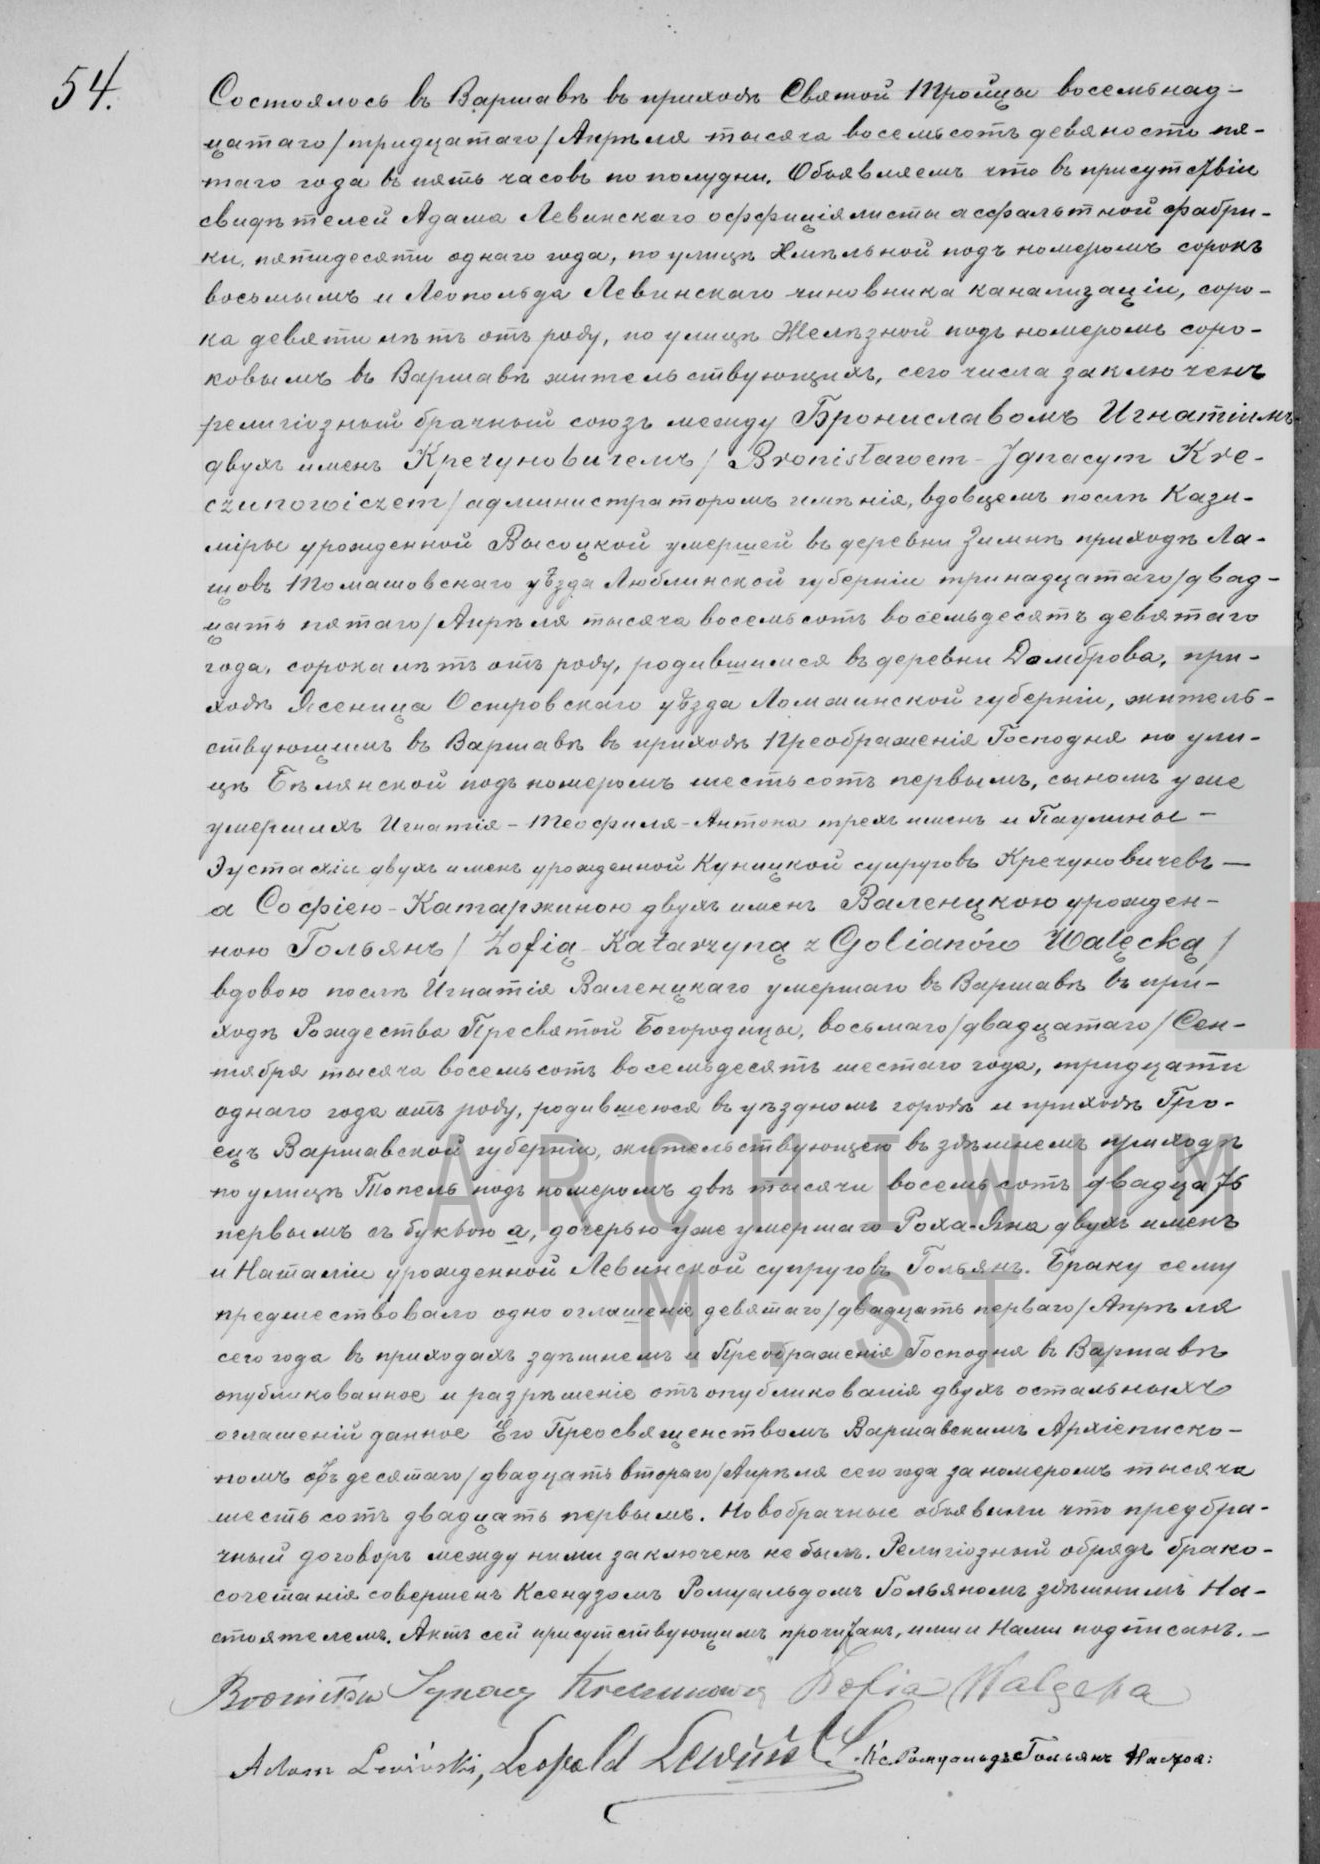 54.
Состоялось въ Варшавѣ въ приходѣ Святой Тройцы восемьнад-
цатаго/тридцатаго/Апрѣля тысяча восемьсотъ девяносто пя-
таго года въ пять часовъ по полудни. Объявляемъ что въ присутствіи
свидѣтелей Адама Левинскаго оффиціялисты асфальтной фабри-
ки, пятидесяти однаго года, по улицѣ Хмѣльной подъ номеромъ сорокъ
восьмымъ и Леопольда Левинскаго чиновника канализаціи, соро-
ка девяти лѣтъ отъ роду, по улицѣ Желѣзной подъ номеромъ соро-
ковымъ въ Варшавѣ жительствующихъ, сего числа заключенъ
религіозный брачный союзъ между Брониславомъ Игнатіимъ
двухъ именъ Кречуновичемъ/Bronisławem-Ignacym Kre-
czunowiczem/администраторомъ имѣнія, вдовцемъ послѣ Кази-
міры урожденной Высоцкой умершей въ деревни Зимнѣ приходѣ Ла-
щовъ Томашовскаго уѣзда Люблинской губерніи тринадцатаго/двад-
цать пятаго/Апрѣля тысяча восемьсотъ восемьдесятъ девятаго
года, сорока лѣтъ отъ роду, родившимся въ деревни Домброва, при-
ходѣ Ясеница Островскаго уѣзда Ломжинской губерніи, житель-
ствующимъ въ Варшавѣ въ приходѣ Преображенія Господня по ули-
цѣ Бѣлянской подъ номеромъ шестьсотъ первымъ, сыномъ уже
умершихъ Игнатія-Теофиля-Антона трехъ именъ и Паулины-
Эустахіи двухъ именъ урожденной Куницкой супруговъ Кречуновичевъ—
а Софіею-Катаржиною двухъ именъ Валенцкою урожден-
ною Гольянъ/Zofią-Katarzyną z Golianów Walęcką/
вдовою послѣ Игнатія Валенцкаго умершаго въ Варшавѣ въ при-
ходѣ Рождества Пресвятой Богородицы, восьмаго/двадцатаго/Сен-
тября тысяча восемьсотъ восемьдесятъ шестаго года, тридцати
однаго года отъ роду, родившеюся въ уѣздномъ городѣ и приходѣ Гро-
ецъ Варшавской губерніи, жительствующею въ здѣшнемъ приходѣ
по улицѣ Тополь подъ номеромъ двѣ тысячи восемьсотъ двадцать
первымъ съ буквою а, дочерью уже умершаго Роха-Яна двухъ именъ
и Наталіи урожденной Левинской супруговъ Гольянъ. Браку сему
предшествовало одно оглашеніе девятаго/двадцать перваго/Апрѣля
сего года въ приходахъ здѣшнемъ и Преображенія Господня въ Варшавѣ
опубликованное и разрѣшеніе отъ опубликованія двухъ остальныхъ
оглашеній данное Его Преосвященствомъ Варшавскимъ Архіеписко-
помъ отъ десятаго/двадцать втораго/Апрѣля сего года за номеромъ тысяча
шестьсотъ двадцать первымъ. Новобрачные объявили что предбра-
чный договоръ между ними заключенъ не былъ. Религіозный обрядъ брако-
сочетанія совершенъ Ксендзомъ Ромуальдомъ Гольяномъ здѣшнимъ На-
стоятелемъ. Актъ сей присутствующимъ прочитанъ, ими и Нами подписанъ.—
Bronisław Ignacy Kreczunowicz Zofia Walęcka
Adam Lewiński, Leopold Lewiński Кс. Ромуальдъ Гольянъ Настоя:
ARCHIWUM
M. ST. W